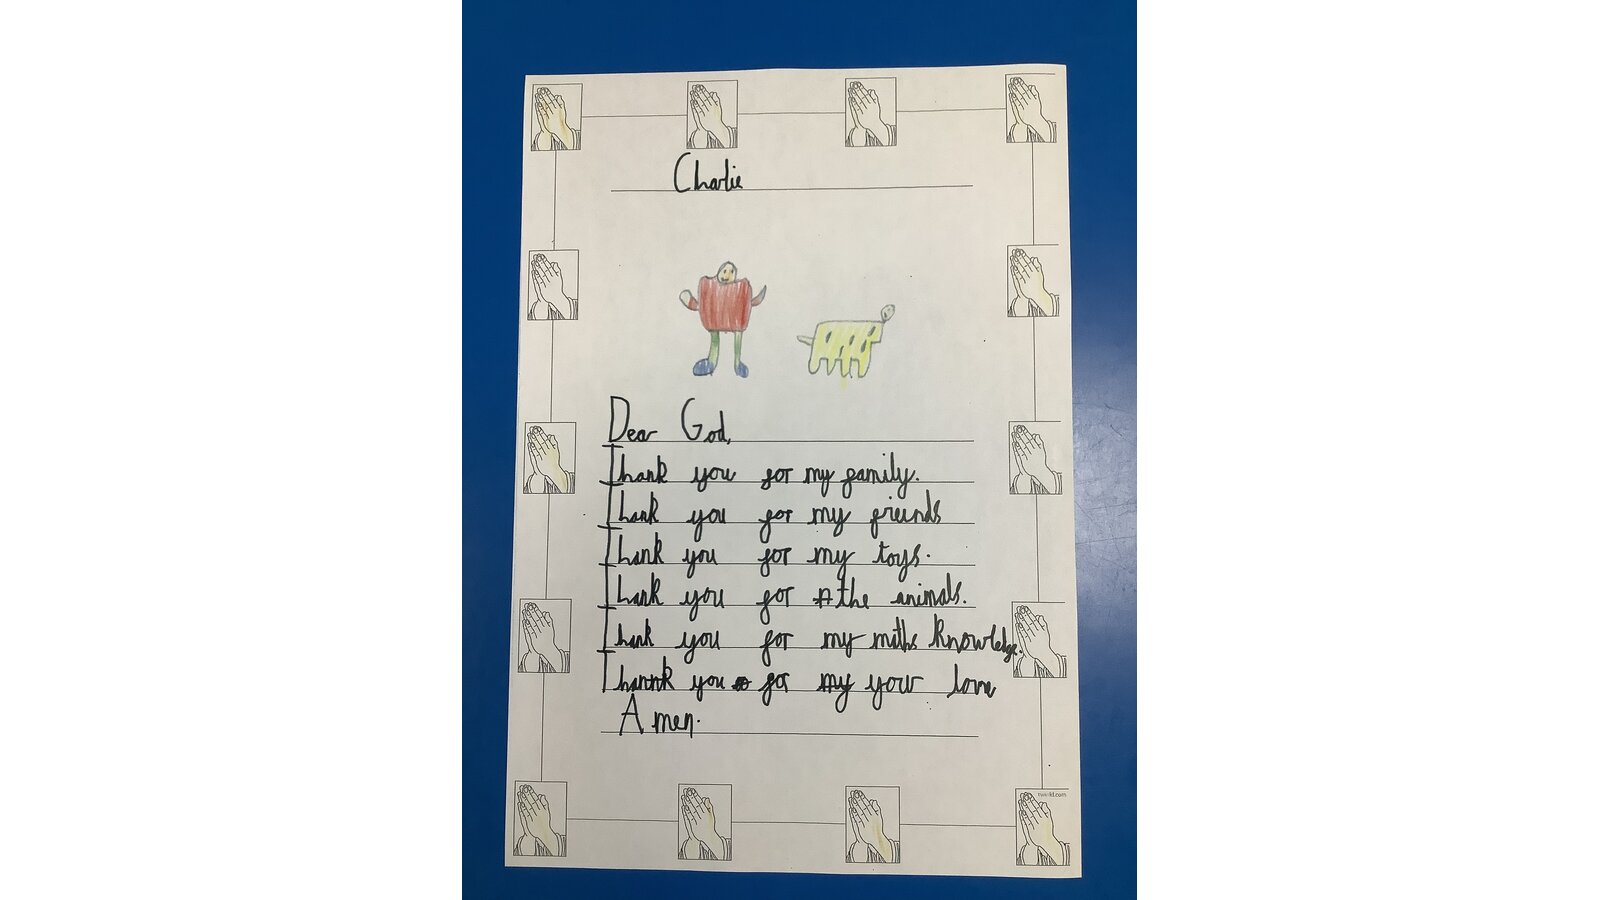 Charlie
Dear God,
Thank you for my family.
Thank you for my freinds
Thank you for my toys.
Thank you for the animals.
Thank you for my maths knowledge.
Thank you for your love
Amen.
twinkl.com